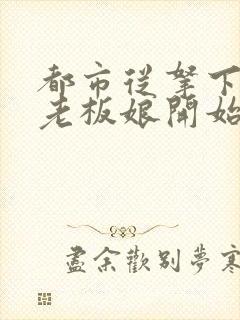 都市從拏下
老板娘開始
盡余歡別夢寒